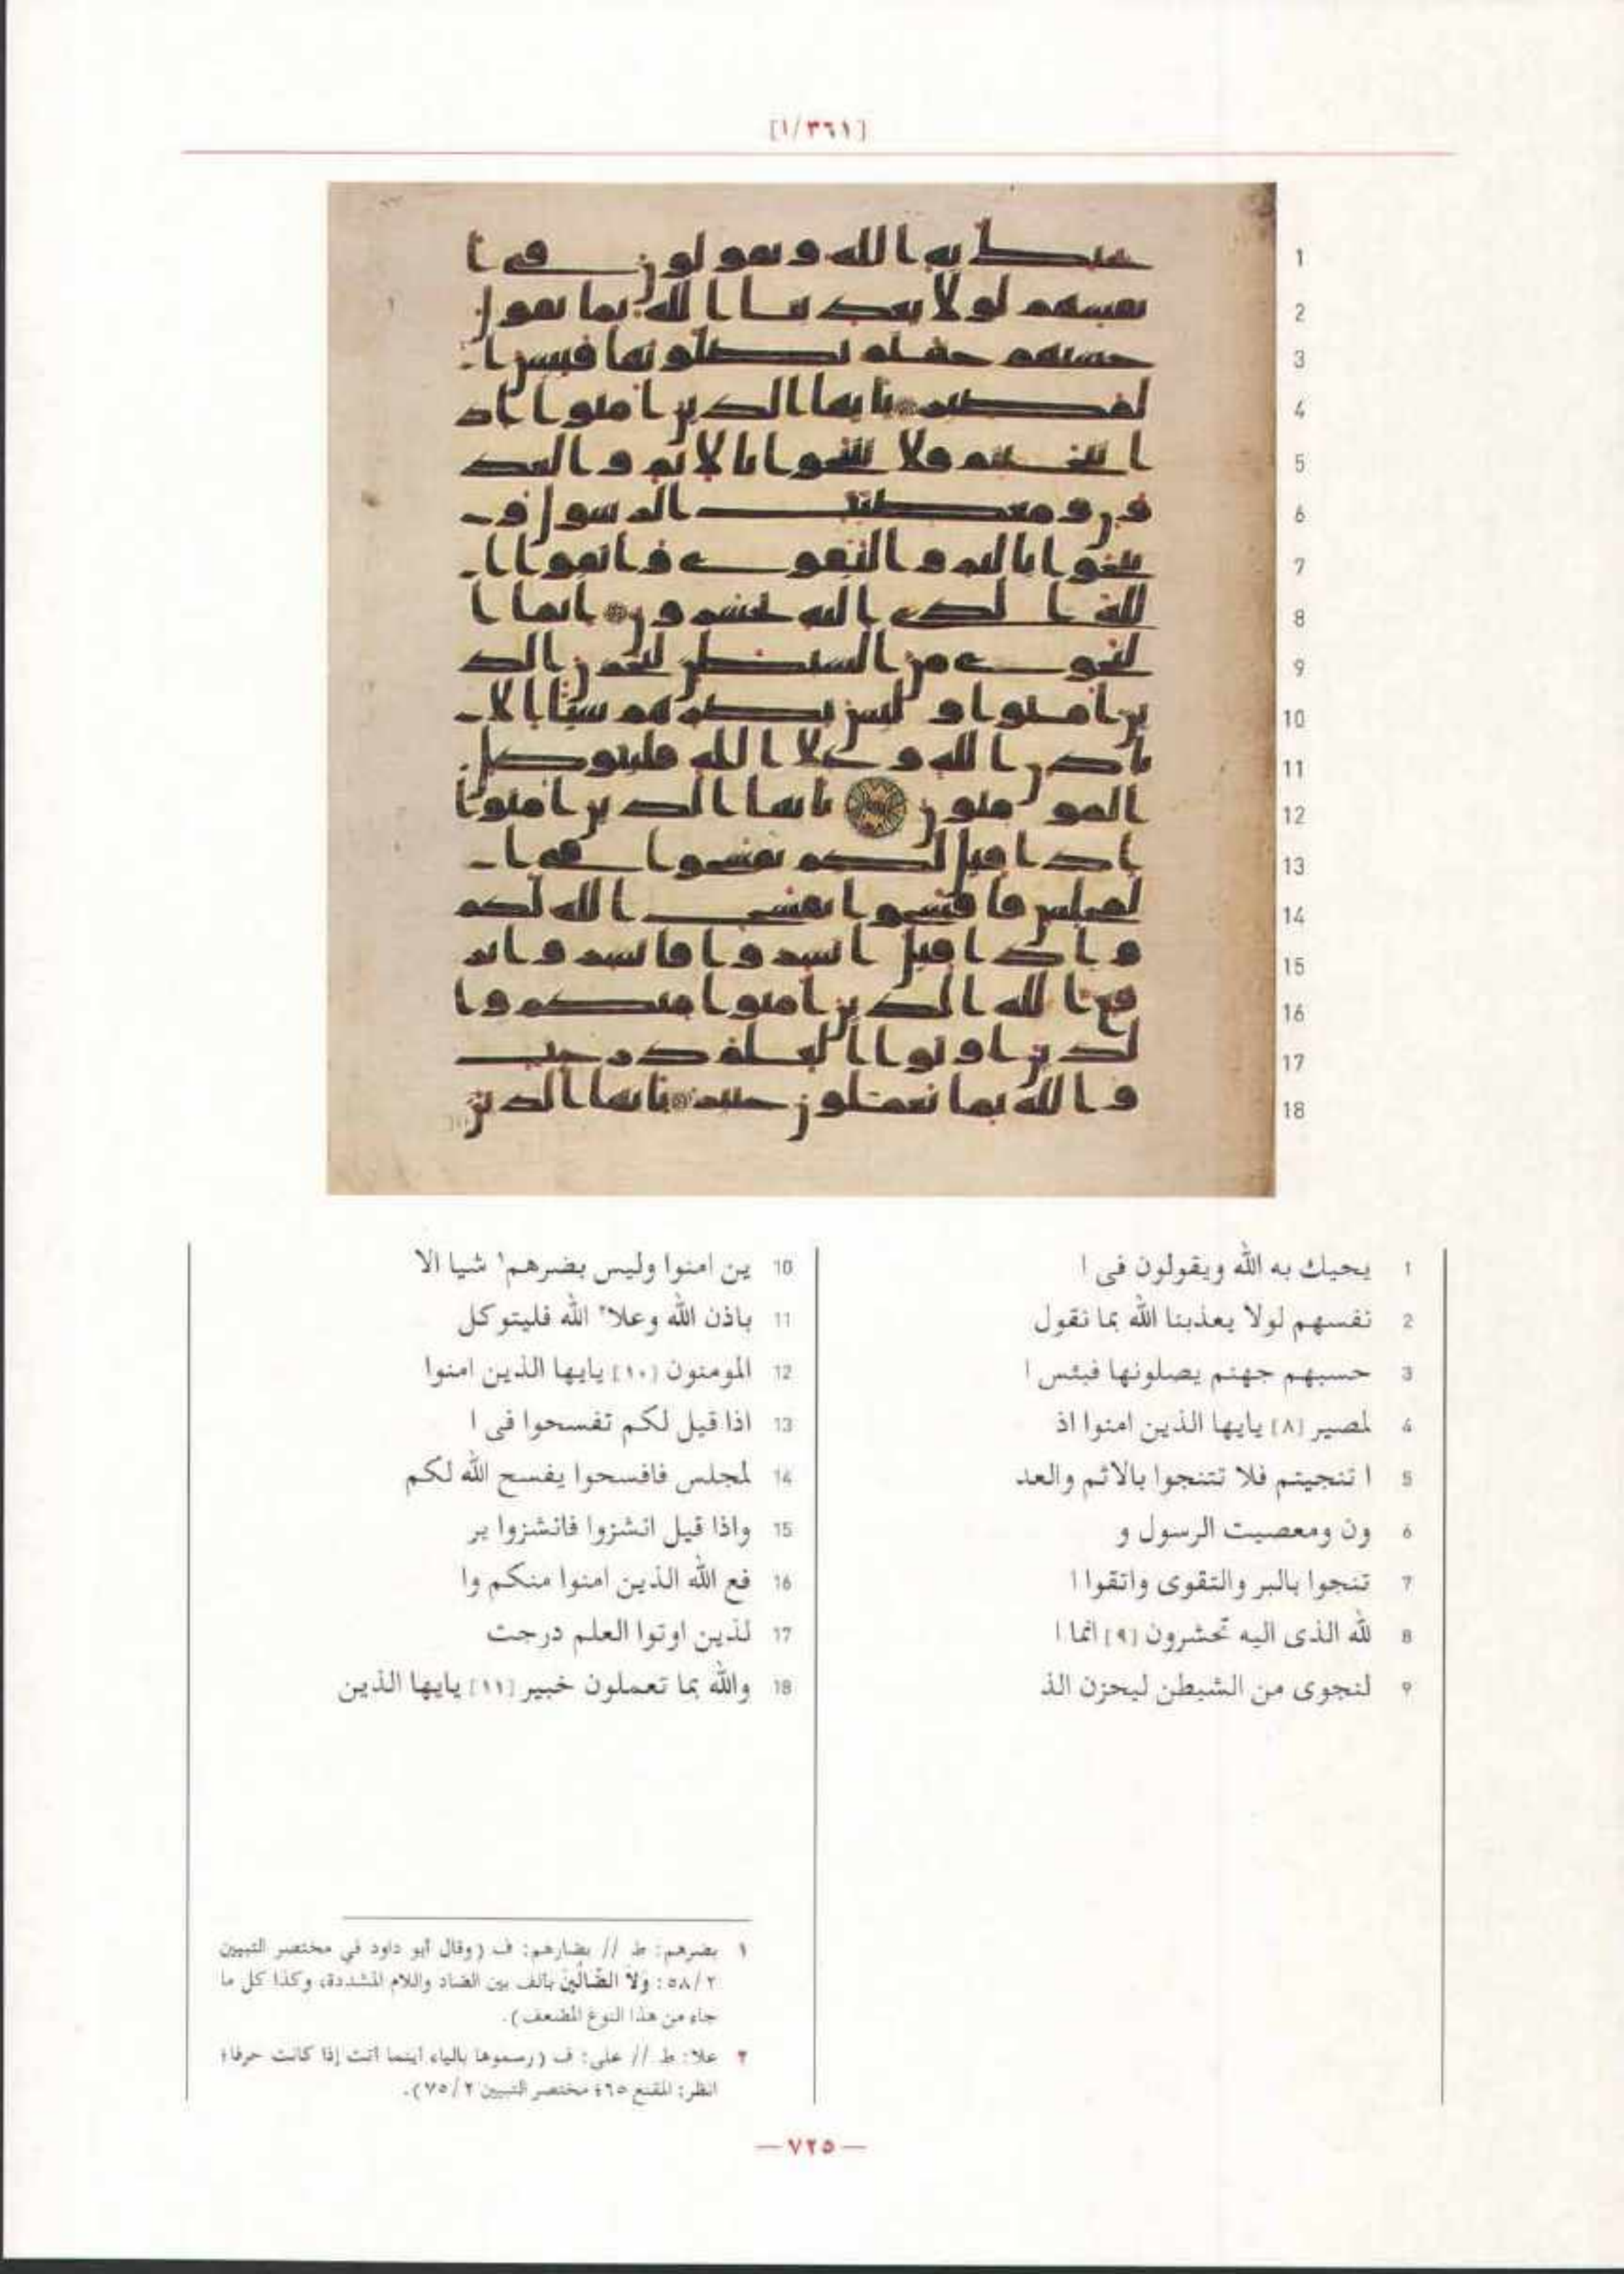 [٣٦١/١]
1
2
3
4
5
6
7
8
9
10
11
12
13
14
15
16
17
18
1 يحيك به الله ويقولون فى ا
2 نفسهم لولا يعذبنا الله بما نقول
3 حسبهم جهنم يصلونها فبئس ا
4 لمصير [٨] يايها الذين امنوا اذ
5 ا تنجيتم فلا تتنجوا بالاثم والعد
6 ون ومعصيت الرسول و
7 تنجوا بالبر والتقوى واتقوا ا
8 لله الذى اليه تحشرون [٩] انما ا
9 لنجوى من الشيطن ليحزن الذ
10 ين امنوا وليس بضرهم١ شيا الا
11 باذن الله وعلا٢ الله فليتوكل
12 المومنون [١٠] يايها الذين امنوا
13 اذا قيل لكم تفسحوا فى ا
14 لمجلس فافسحوا يفسح الله لكم
15 واذا قيل انشزوا فانشزوا ير
16 فع الله الذين امنوا منكم وا
17 لذين اوتوا العلم درجت
18 والله بما تعملون خبير [١١] يايها الذين
١ بضرهم: ط // بضارهم: ف (وقال أبو داود في مختصر التبيين
٥٨/٢: وَلَا الضَّالِّينَ بألف بين الضاد واللام المشددة، وكذا كل ما
جاء من هذا النوع المضعف).
٢ علا: ط // على: ف (رسموها بالياء أينما أتت إذا كانت حرفا؛
انظر: المقنع ٦٥؛ مختصر التبيين ٧٥/٢).
— ٧٢٥ —